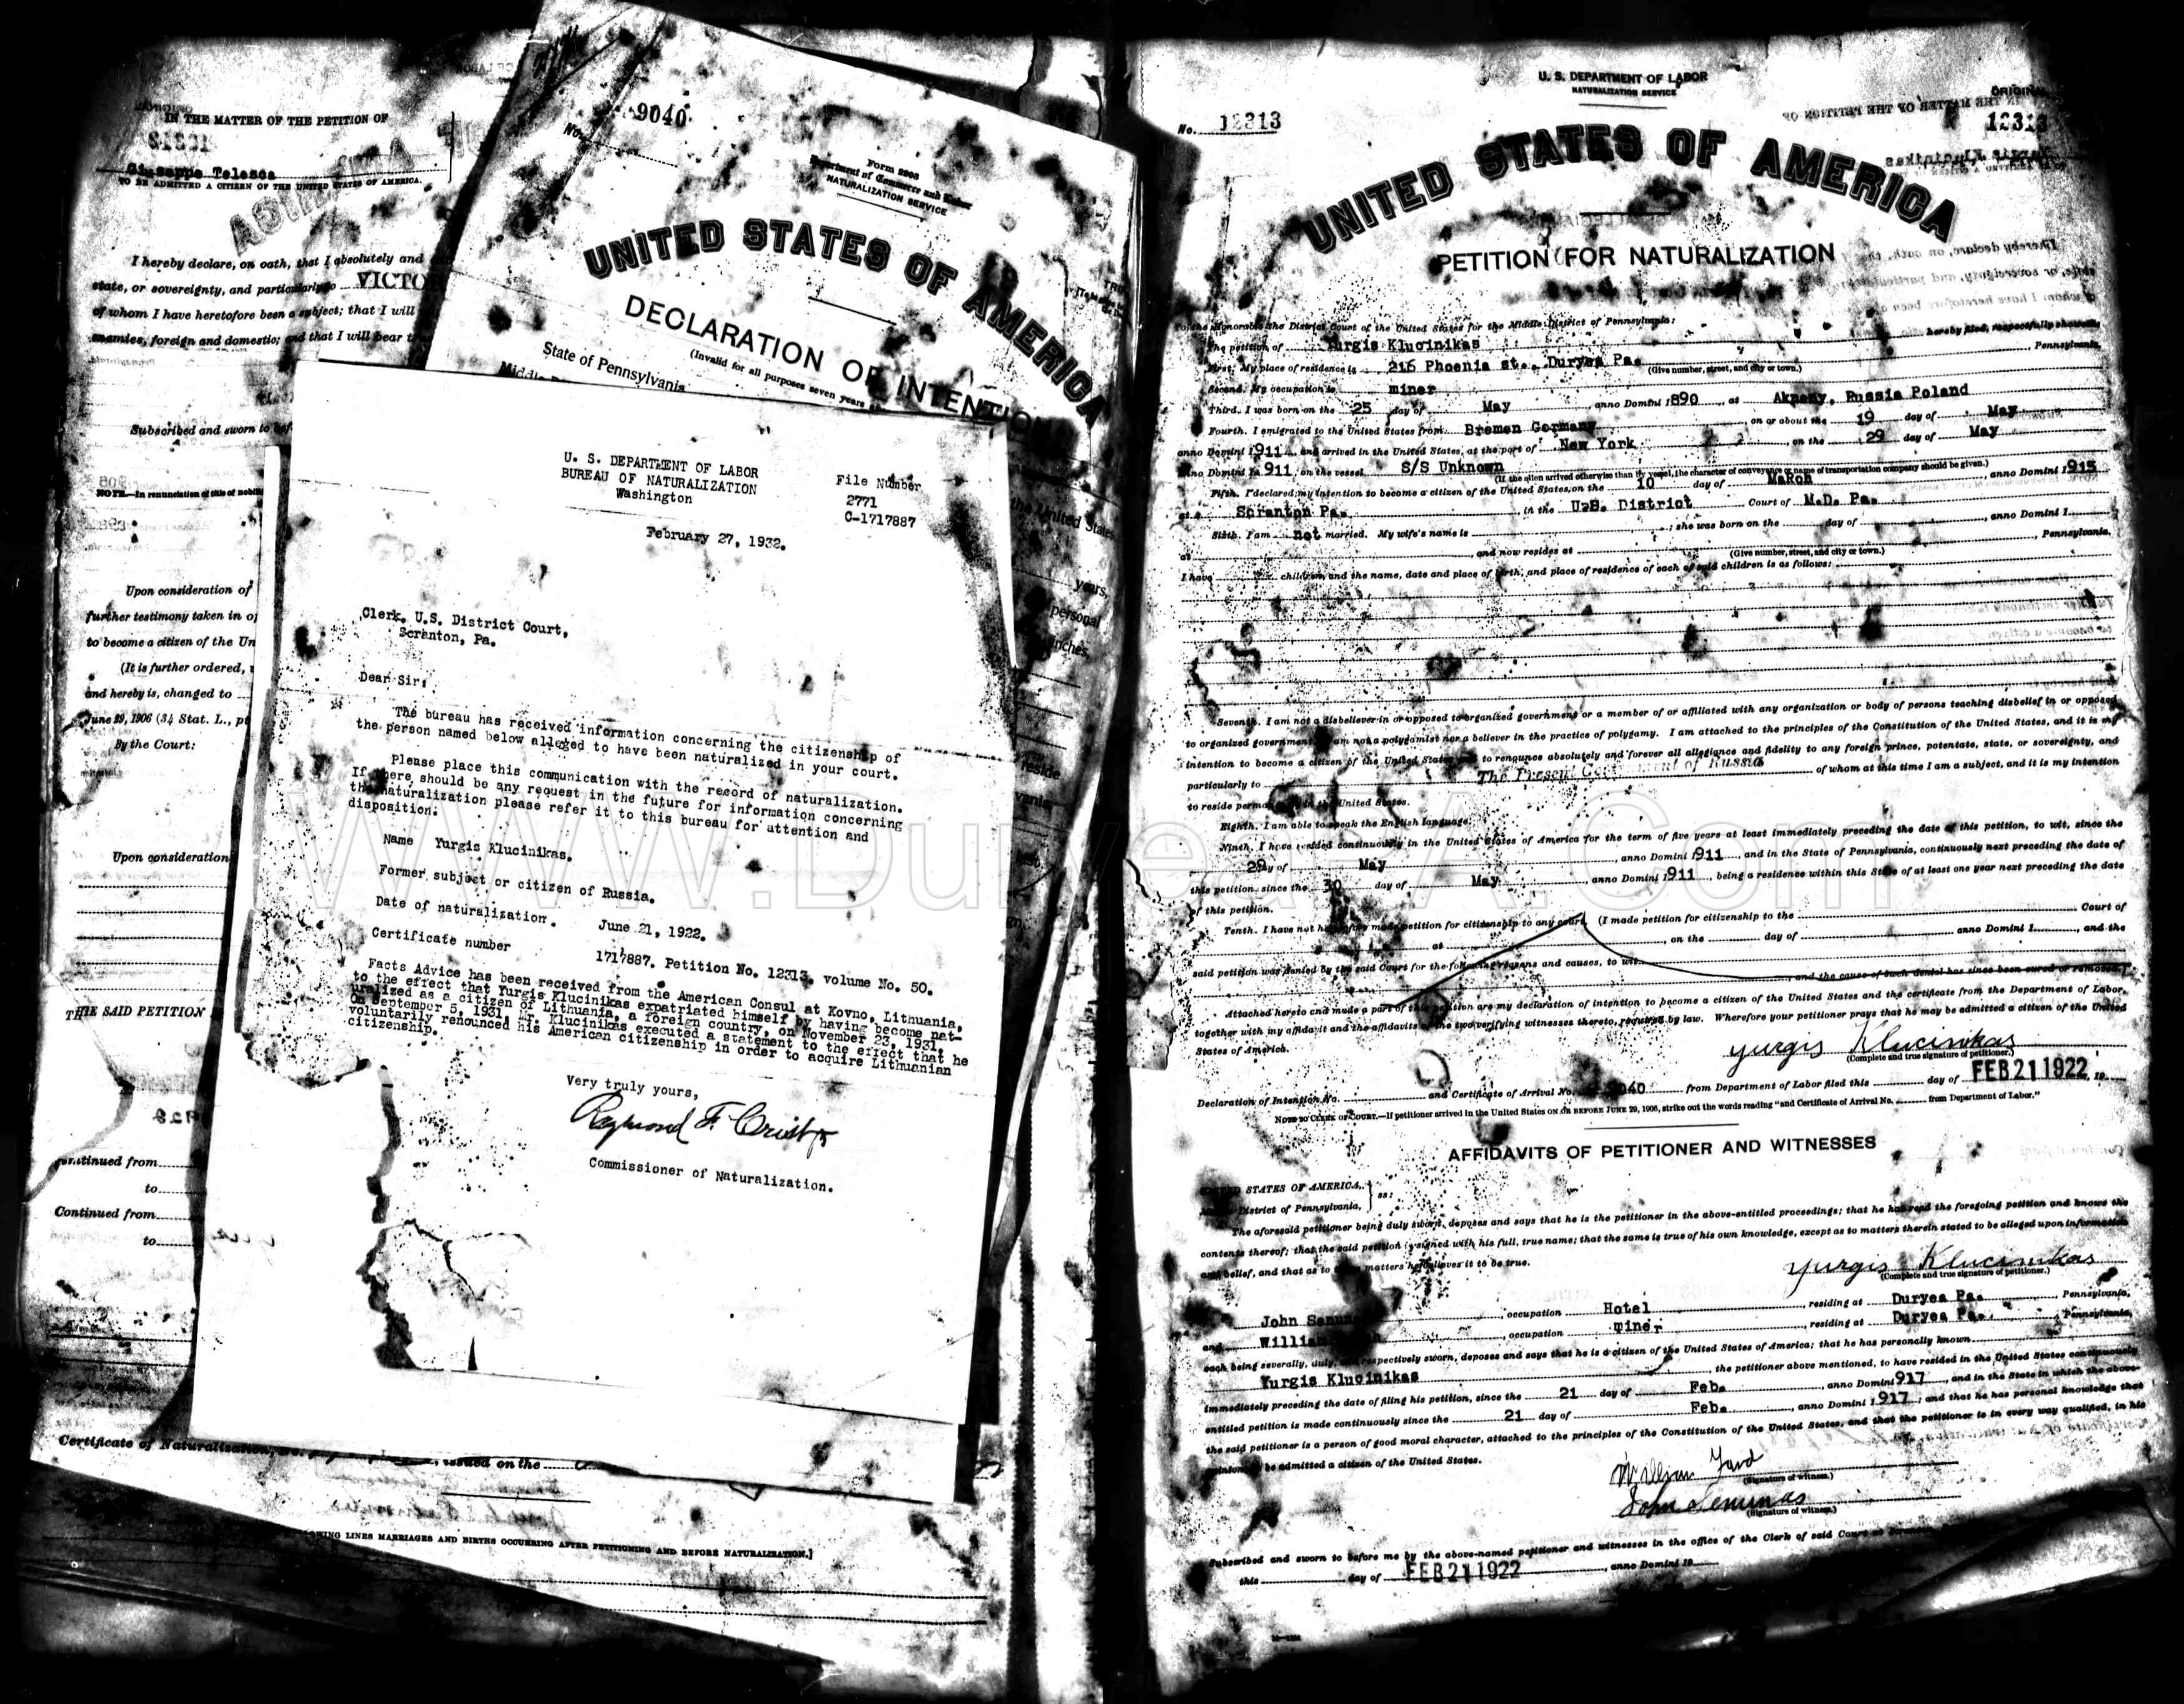 IN THE MATTER OF THE PETITION OF
Giuseppe Telesca
TO BE ADMITTED A CITIZEN OF THE UNITED STATES OF AMERICA.
I hereby declare, on oath, that I absolutely and
state, or sovereignty, and particularly to VICTO
of whom I have heretofore been a subject; that I will
enemies, foreign and domestic; and that I will bear t
Subscribed and sworn to bef
NOTE.—In renunciation of title of nobili
Upon consideration of
further testimony taken in o
to become a citizen of the Un
(It is further ordered,
and hereby is, changed to
June 29, 1906 (34 Stat. L., p
By the Court:
Upon consideration
THE SAID PETITION
Continued from
to
Continued from
to
Certificate of Naturalization, issued on the
LINES MARRIAGES AND BIRTHS OCCURRING AFTER PETITIONING AND BEFORE NATURALIZATION.]
No. 9040
Form 2203
Department of Commerce and Labor
NATURALIZATION SERVICE
UNITED STATES OF AMERICA
DECLARATION OF INTENTION
(Invalid for all purposes seven years
State of Pennsylvania
the United States
years,
personal
inches,
reside
U. S. DEPARTMENT OF LABOR
BUREAU OF NATURALIZATION
Washington
File Number
2771
C-1717887
February 27, 1932.
Clerk, U.S. District Court,
Scranton, Pa.
Dear Sir:
The bureau has received information concerning the citizenship of
the person named below alleged to have been naturalized in your court.
Please place this communication with the record of naturalization.
If there should be any request in the future for information concerning
the naturalization please refer it to this bureau for attention and
disposition:
Name Yurgis Klucinikas.
Former subject or citizen of Russia.
Date of naturalization. June 21, 1922.
Certificate number 1717887. Petition No. 12313, volume No. 50.
Facts Advice has been received from the American Consul at Kovno, Lithuania,
to the effect that Yurgis Klucinikas expatriated himself by having become nat-
uralized as a citizen of Lithuania, a foreign country, on November 23, 1931.
On September 5, 1931, Mr. Klucinikas executed a statement to the effect that he
voluntarily renounced his American citizenship in order to acquire Lithuanian
citizenship.
Very truly yours,
Raymond F. Crist
Commissioner of Naturalization.
U. S. DEPARTMENT OF LABOR
NATURALIZATION SERVICE
ORIGINAL
No. 12313
12313
UNITED STATES OF AMERICA
PETITION FOR NATURALIZATION
To the Honorable the District Court of the United States for the Middle District of Pennsylvania:
The petition of Yurgis Klucinikas hereby filed, respectfully showeth:
First. My place of residence is 215 Phoenia st., Duryea Pa. Pennsylvania.
(Give number, street, and city or town.)
Second. My occupation is miner
Third. I was born on the 25 day of May anno Domini 1890, at Akneny, Russia Poland
Fourth. I emigrated to the United States from Bremen Germany on or about the 19 day of May
anno Domini 1911, and arrived in the United States, at the port of New York, on the 29 day of May
anno Domini 1911, on the vessel S/S Unknown
(If the alien arrived otherwise than by vessel, the character of conveyance or name of transportation company should be given.)
Fifth. I declared my intention to become a citizen of the United States on the 10 day of MaRch anno Domini 1915
at Scranton Pa. in the U.S. District Court of M.D. Pa.
Sixth. I am not married. My wife's name is ; she was born on the day of , anno Domini 1
at , and now resides at , Pennsylvania.
(Give number, street, and city or town.)
I have children, and the name, date and place of birth, and place of residence of each of said children is as follows:
Seventh. I am not a disbeliever in or opposed to organized government or a member of or affiliated with any organization or body of persons teaching disbelief in or opposed
to organized government. I am not a polygamist nor a believer in the practice of polygamy. I am attached to the principles of the Constitution of the United States, and it is my
intention to become a citizen of the United States and to renounce absolutely and forever all allegiance and fidelity to any foreign prince, potentate, state, or sovereignty, and
particularly to The Present Government of Russia of whom at this time I am a subject, and it is my intention
to reside permanently in the United States.
Eighth. I am able to speak the English language.
Ninth. I have resided continuously in the United States of America for the term of five years at least immediately preceding the date of this petition, to wit, since the
29 day of May, anno Domini 1911, and in the State of Pennsylvania, continuously next preceding the date of
this petition, since the 30 day of May anno Domini 1911, being a residence within this State of at least one year next preceding the date
of this petition.
Tenth. I have not heretofore made petition for citizenship to any court. (I made petition for citizenship to the Court of
at , on the day of anno Domini 1 , and the
said petition was denied by the said Court for the following reasons and causes, to wit,
and the cause of such denial has since been cured or removed.)
Attached hereto and made a part of this petition are my declaration of intention to become a citizen of the United States and the certificate from the Department of Labor,
together with my affidavit and the affidavits of the two verifying witnesses thereto, required by law. Wherefore your petitioner prays that he may be admitted a citizen of the United
States of America.
Yurgis Klucinikas
(Complete and true signature of petitioner.)
Declaration of Intention No. and Certificate of Arrival No. 9040 from Department of Labor filed this day of FEB 21 1922, 19
NOTE TO CLERK OF COURT.—If petitioner arrived in the United States ON OR BEFORE JUNE 29, 1906, strike out the words reading "and Certificate of Arrival No. from Department of Labor."
AFFIDAVITS OF PETITIONER AND WITNESSES
UNITED STATES OF AMERICA,
Middle District of Pennsylvania, } ss:
The aforesaid petitioner being duly sworn, deposes and says that he is the petitioner in the above-entitled proceedings; that he has read the foregoing petition and knows the
contents thereof; that the said petition is signed with his full, true name; that the same is true of his own knowledge, except as to matters therein stated to be alleged upon information
and belief, and that as to those matters he believes it to be true.
Yurgis Klucinikas
(Complete and true signature of petitioner.)
John , occupation Hotel, residing at Duryea Pa., Pennsylvania,
and William , occupation miner, residing at Duryea Pa., Pennsylvania,
each being severally, duly, and respectively sworn, deposes and says that he is a citizen of the United States of America; that he has personally known
Yurgis Klucinikas, the petitioner above mentioned, to have resided in the United States continuously
immediately preceding the date of filing his petition, since the 21 day of Feb., anno Domini 1917, and in the State in which the above-
entitled petition is made continuously since the 21 day of Feb., anno Domini 1917, and that he has personal knowledge that
the said petitioner is a person of good moral character, attached to the principles of the Constitution of the United States, and that the petitioner is in every way qualified, in his
opinion, to be admitted a citizen of the United States.
William
(Signature of witness.)
John Senunas
(Signature of witness.)
Subscribed and sworn to before me by the above-named petitioner and witnesses in the office of the Clerk of said Court at
this day of FEB 21 1922, anno Domini 19
www.DuryeaPA.Com